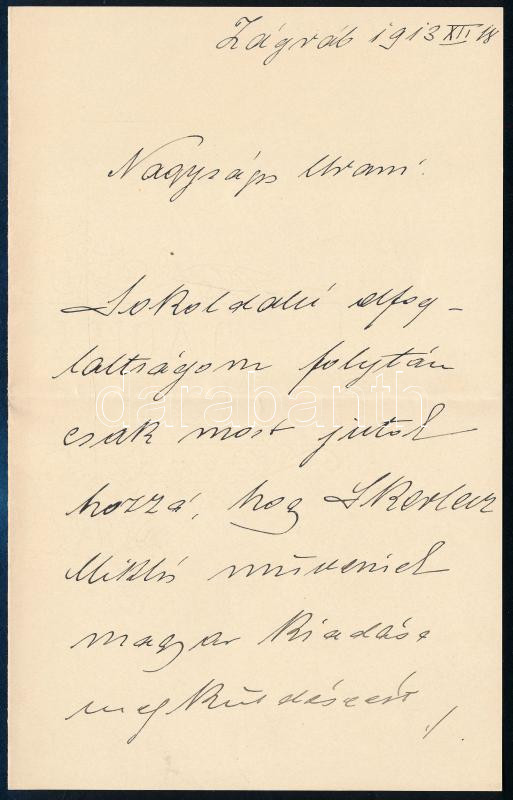 Zágráb 1913 XII 18
Nagyságos Uram!
Sokoldalú elfog-
laltságom folytán
darabanth
csak most jutok
hozzá, hog Skerlecz
Miklós műveinek
magyar kiadása
megküldéséért
./.